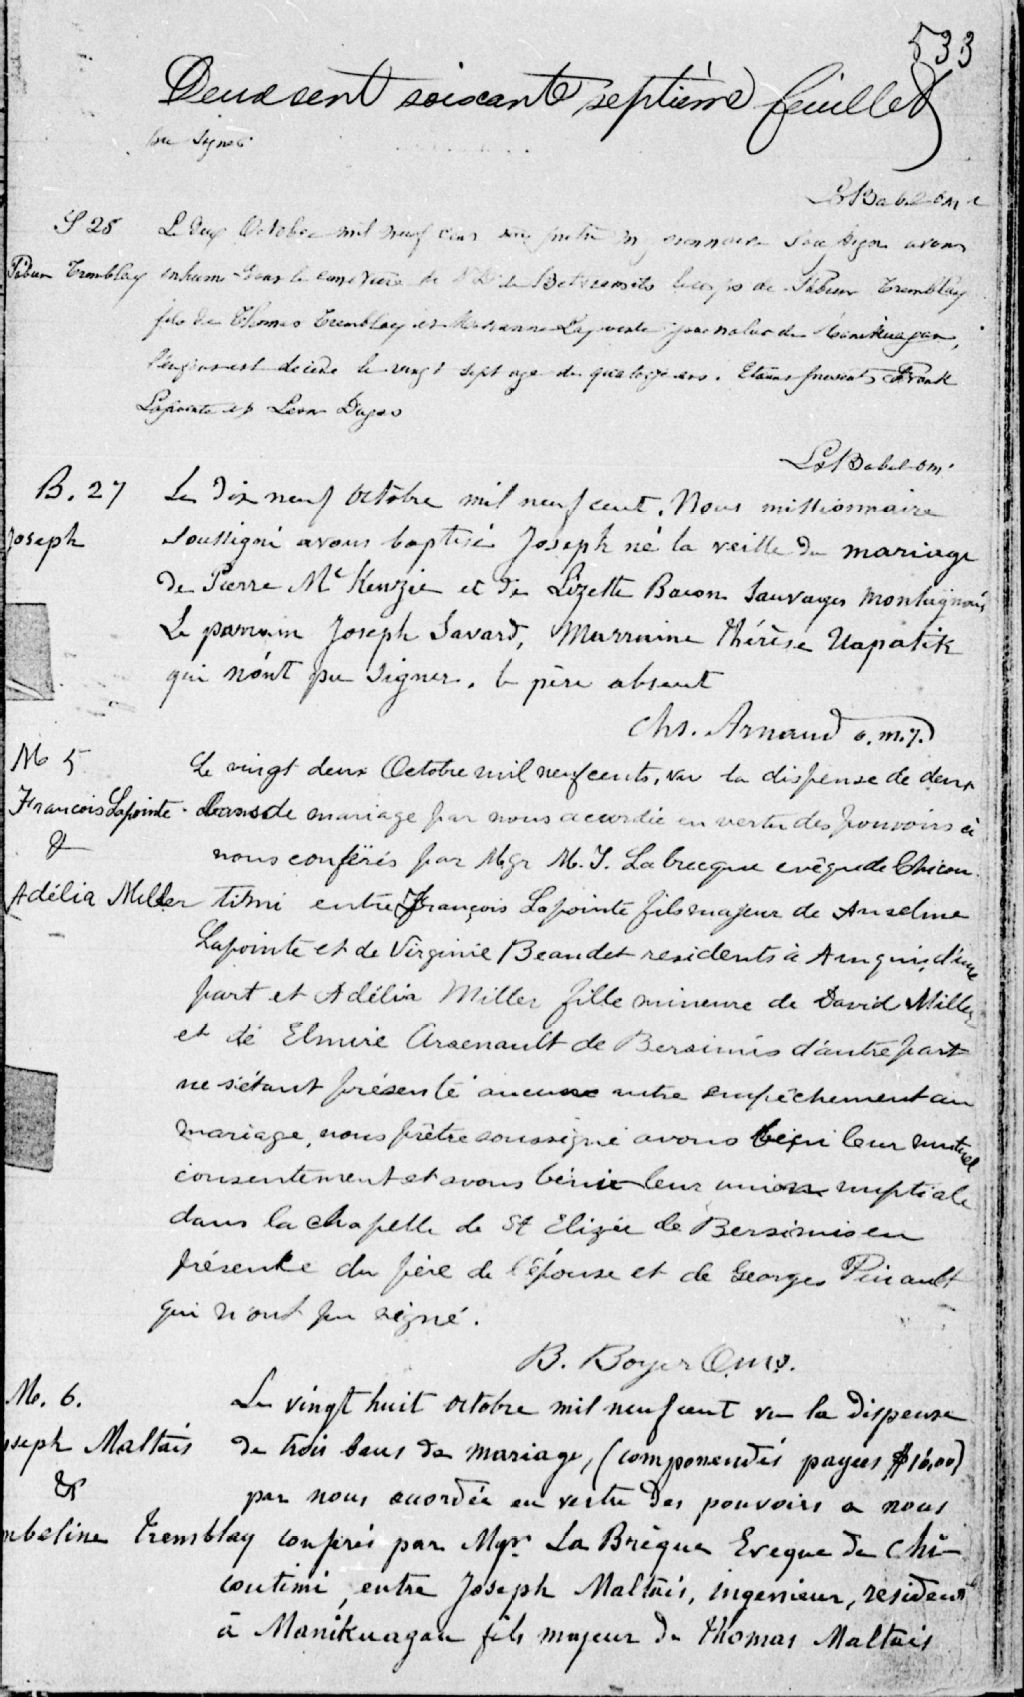 533
Deux cent soixante septième feuillet
pu signer.
Ls Babel omi
S 28
Le Octobre mil neuf cent missionnaire soussigné avons
Tremblay inhumé dans le cimetière de N D de Betsiamits le corps de Tremblay
fils de Thomas Tremblay et journalier de Manikuagan,
est décédé le vingt sept agé de quatorze ans. Etaient présents Frank
Lapointe et Leon
Ls Babel omi
B. 27
Joseph
Le dix neuf octobre mil neuf cent. Nous missionnaire
soussigné avons baptisé Joseph né la veille du mariage
de Pierre Mc Kenzie et de Lizette Bacon Sauvages Montagnais
Le parrain Joseph Savard, Marraine Thérèse Uapatik
qui n'ont pu signer. le père absent
Chs. Arnaud o.m.j.
M 5
François Lapointe
&
Adélia Miller
Le vingt deux Octobre mil neuf cents, vu la dispense de deux
bans de mariage par nous accordée en vertu des pouvoirs à
nous conférés par Mgr M. T. Labrecque evêque de Chicou
timi entre François Lapointe fils majeur de Anselme
Lapointe et de Virginie Beaudet residents à d'une
part et Adélia Miller fille mineure de David Miller
et de Elmire Arsenault de Bersimis d'autre part
ne s'étant présenté aucune autre empêchement au
mariage, nous prêtre soussigné avons leur mutuel
consentement et avons béni leur union nuptiale
dans la chapelle de St Elizée de Bersimis en
présence du père de l'épouse et de Georges Pinault
qui n'ont pu signé.
B. Boyer O.m.i.
M. 6.
oseph Maltais
&
mbeline Tremblay
Le vingt huit octobre mil neuf cent vu la dispense
de trois bans de mariage, (componendés payées $16,00)
par nous acordée en vertu des pouvoirs a nous
conférés par Mgr. La Brèque Eveque de Chi-
coutimi, entre Joseph Maltais, ingenieur, resident
à Manikuagan fils majeur de Thomas Maltais